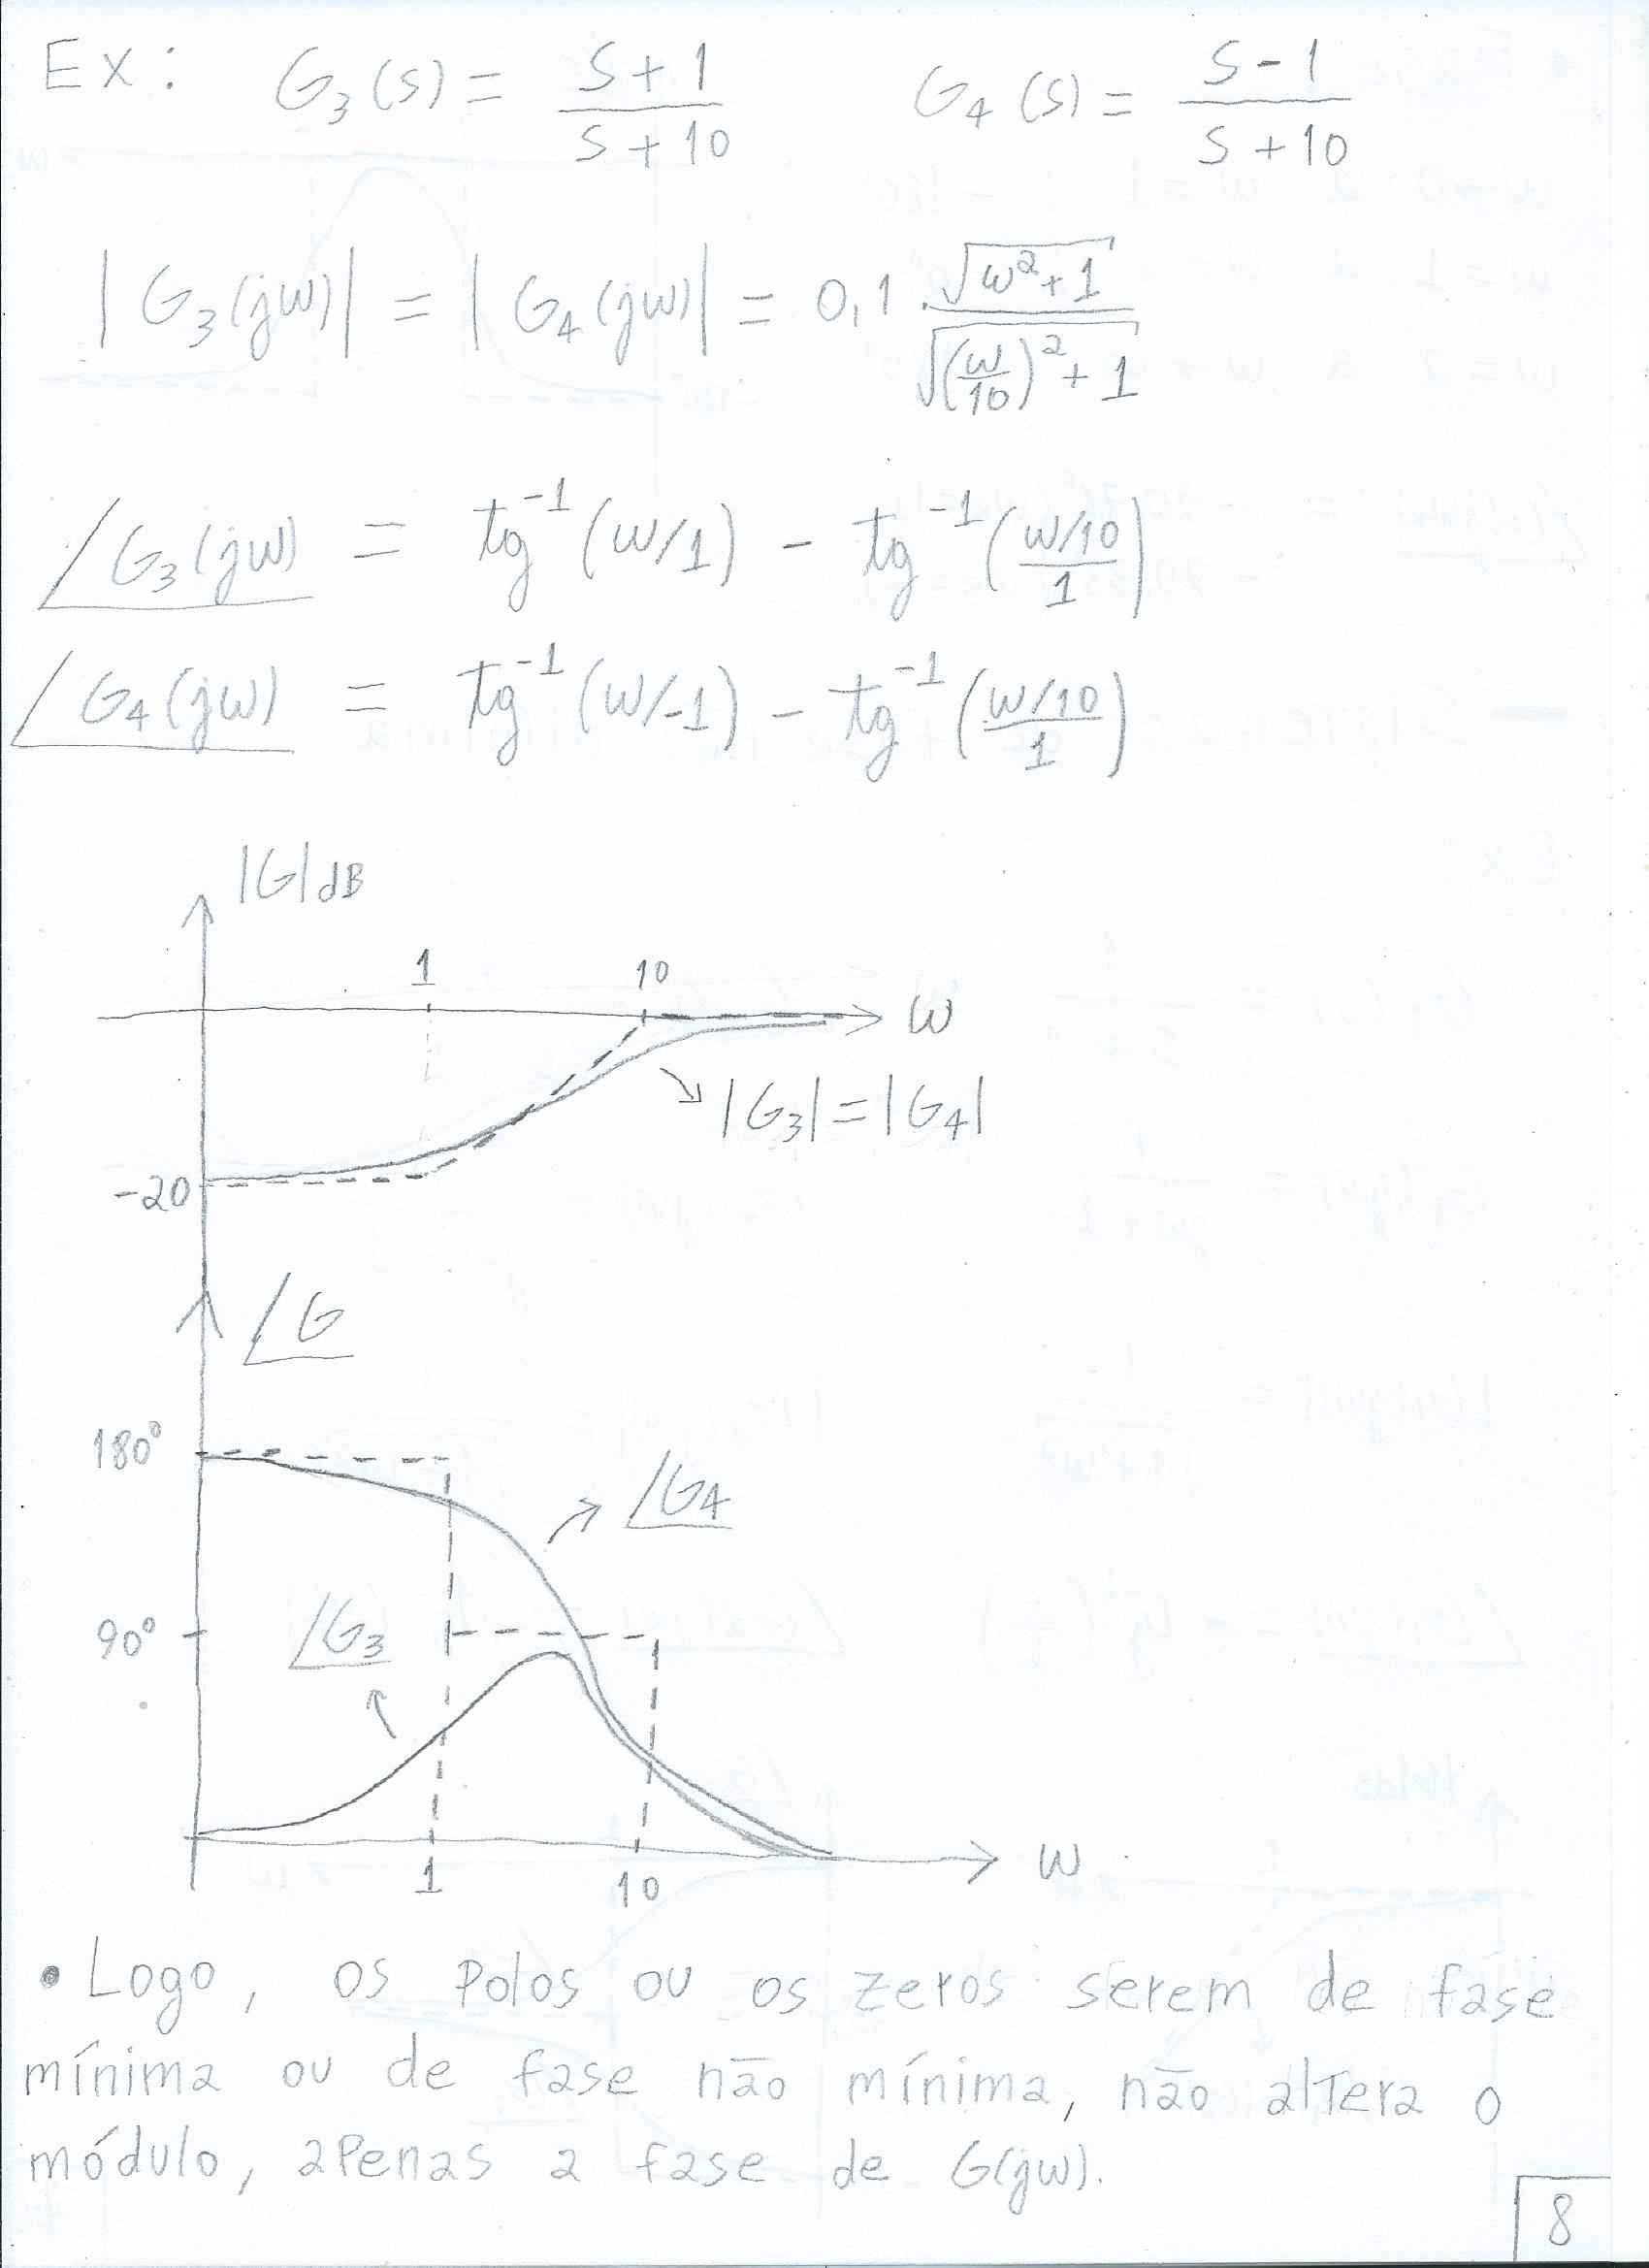 Ex: G₃(s) = (s+1)/(s+10) G₄(s) = (s-1)/(s+10)
|G₃(jω)| = |G₄(jω)| = 0,1 . √(ω²+1) / √((ω/10)²+1)
∠G₃(jω) = tg⁻¹(ω/1) - tg⁻¹((ω/10)/1)
∠G₄(jω) = tg⁻¹(ω/-1) - tg⁻¹((ω/10)/1)
|G|dB
1 10
ω
|G₃|=|G₄|
-20
∠G
180°
∠G₄
90° ∠G₃
1 10 ω
• Logo, os polos ou os zeros serem de fase
mínima ou de fase não mínima, não altera o
módulo, apenas a fase de G(jω).
8